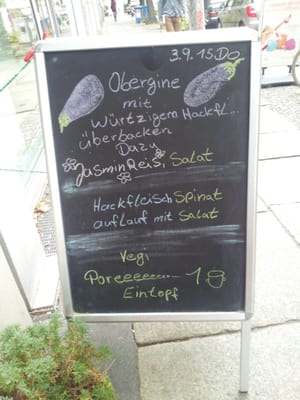 3.9.15.Do
Obergine
mit
Würtzigem Hackfl...
überbacken
Dazu
JasminReis, Salat
Hackfleisch Spinat
auflauf mit Salat
Vegi
Poreeeeeee.... 1
Eintopf